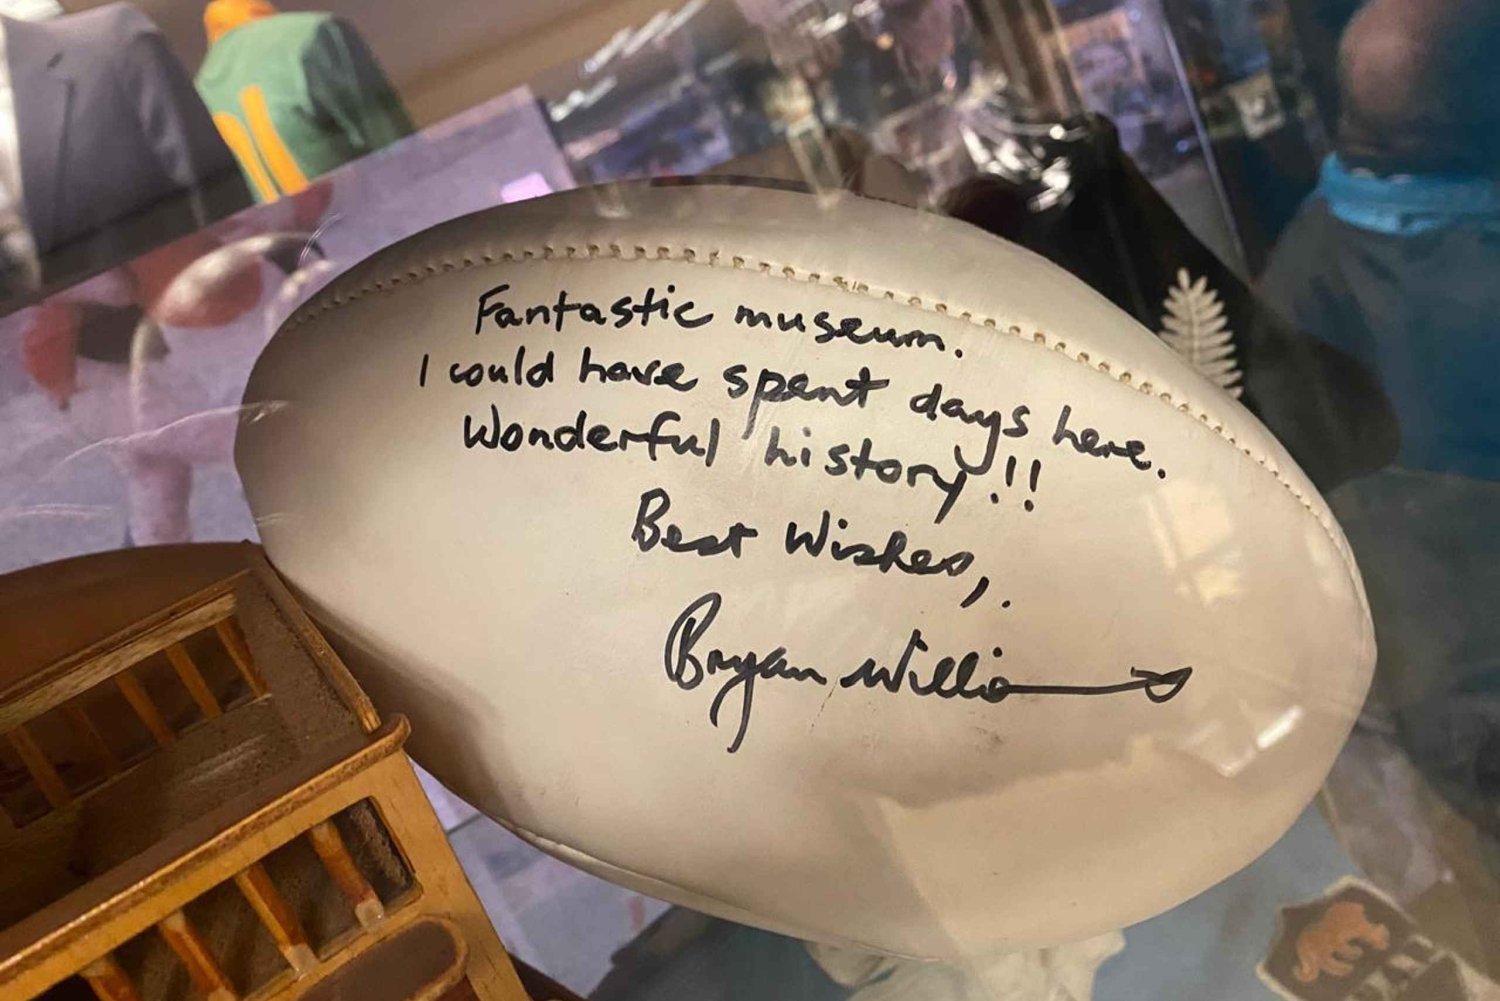 Fantastic museum.
I could have spent days here.
Wonderful history!!
Best Wishes,.
Bryan Willia